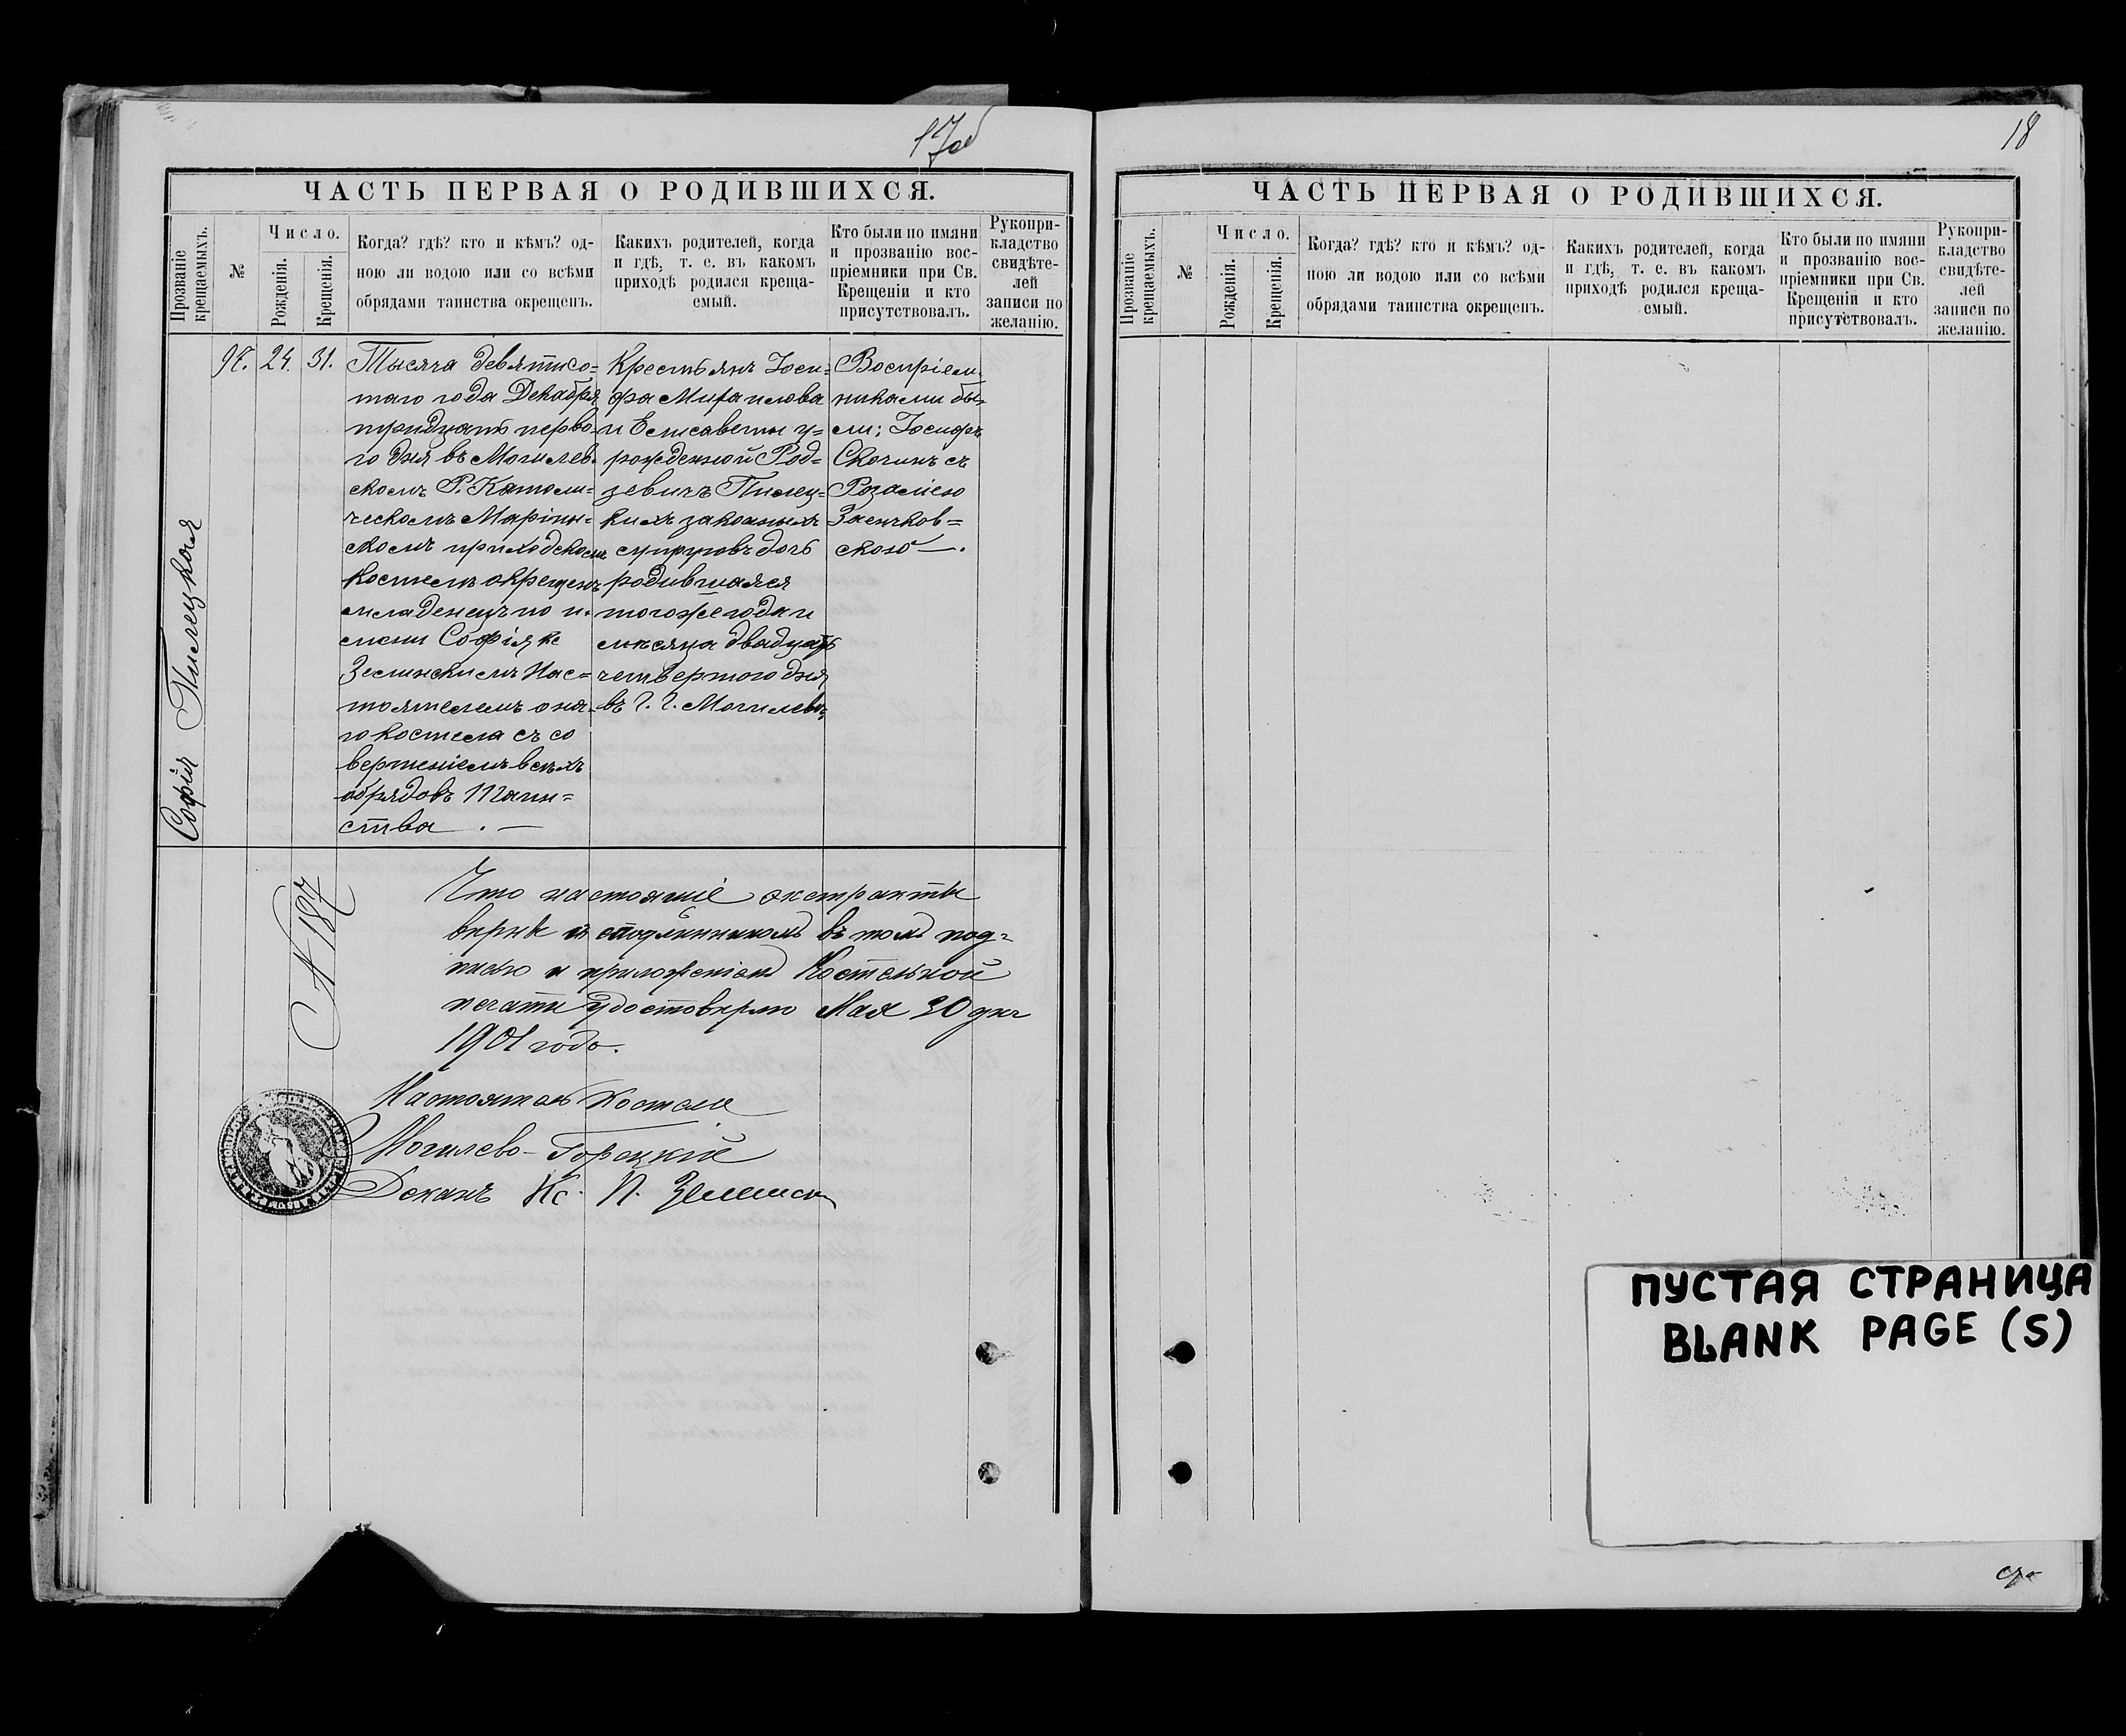 17об
ЧАСТЬ ПЕРВАЯ О РОДИВШИХСЯ.
Прозваніе крещаемыхъ.
№
Число.
Рожденія.
Крещенія.
Когда? гдѣ? кто и кѣмъ? од-
ною ли водою или со всѣми
обрядами таинства окрещенъ.
Какихъ родителей, когда
и гдѣ, т. е. въ какомъ
приходѣ родился креща-
емый.
Кто были по имяни
и прозванію вос-
пріемники при Св.
Крещеніи и кто
присутствовалъ.
Рукопри-
кладство
свидѣте-
лей
записи по
желанію.
Софія Пилецкая
97.
24.
31.
Тысяча девятисо=
таго года Декабря
тридцать перво-
го дня въ Могилев-
скомъ Р. Католи=
ческомъ Маріин=
скомъ приходскомъ
костелѣ окрещенъ
младенецъ по и-
мени Софія кс
Зелинскимъ Нас=
тоятелемъ она-
го костела съ со
вершеніемъ всѣхъ
обрядовъ Таин=
ства . —
Крестьянъ Іоси=
фа Михаилова
и Елисаветы у=
рожденной Род=
зевичъ Пилец=
кихъ законныхъ
супруговъ дочь
родившаяся
тогоже года и
мѣсяца двадцать
четвертого дня
въ Г. Г. Могилевѣ,
Воспріем-
никами бы=
ли: Іосифъ
Скочинъ съ
Розаліею
Заенчков=
скою —.
N 187
Что настоящіе экстракты
вѣрны съ подлинникомъ въ томъ под=
писью и приложеніемъ Костельной
печати удостовѣряю Мая 30 дня
1901 года.
Настоятель Костела
Могилево-Горецкій
Деканъ Кс. П. Зелинск
18
ЧАСТЬ ПЕРВАЯ О РОДИВШИХСЯ.
Прозваніе крещаемыхъ.
№
Число.
Рожденія.
Крещенія.
Когда? гдѣ? кто и кѣмъ? од-
ною ли водою или со всѣми
обрядами таинства окрещенъ.
Какихъ родителей, когда
и гдѣ, т. е. въ какомъ
приходѣ родился креща-
емый.
Кто были по имяни
и прозванію вос-
пріемники при Св.
Крещеніи и кто
присутствовалъ.
Рукопри-
кладство
свидѣте-
лей
записи по
желанію.
ПУСТАЯ СТРАНИЦА
BLANK PAGE (S)